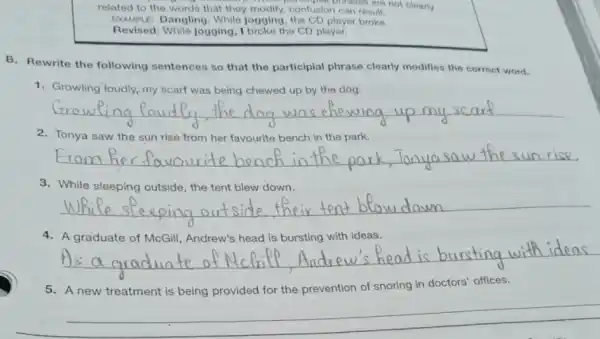 phrases are not clearly
related to the words that they modify, confusion can result.
EXAMPLE: Dangling: While jogging, the CD player broke.
Revised: While jogging, I broke the CD player.
B. Rewrite the following sentences so that the participial phrase clearly modifies the correct word.
1. Growling loudly, my scarf was being chewed up by the dog.
Growling loudly, the dog was chewing up my scarf
2. Tonya saw the sun rise from her favourite bench in the park.
From her favourite bench in the park, Tonya saw the sun rise.
3. While sleeping outside, the tent blew down.
While sleeping outside, their tent blow down
4. A graduate of McGill, Andrew's head is bursting with ideas.
As a graduate of McGill, Andrew's head is bursting with ideas
5. A new treatment is being provided for the prevention of snoring in doctors' offices.